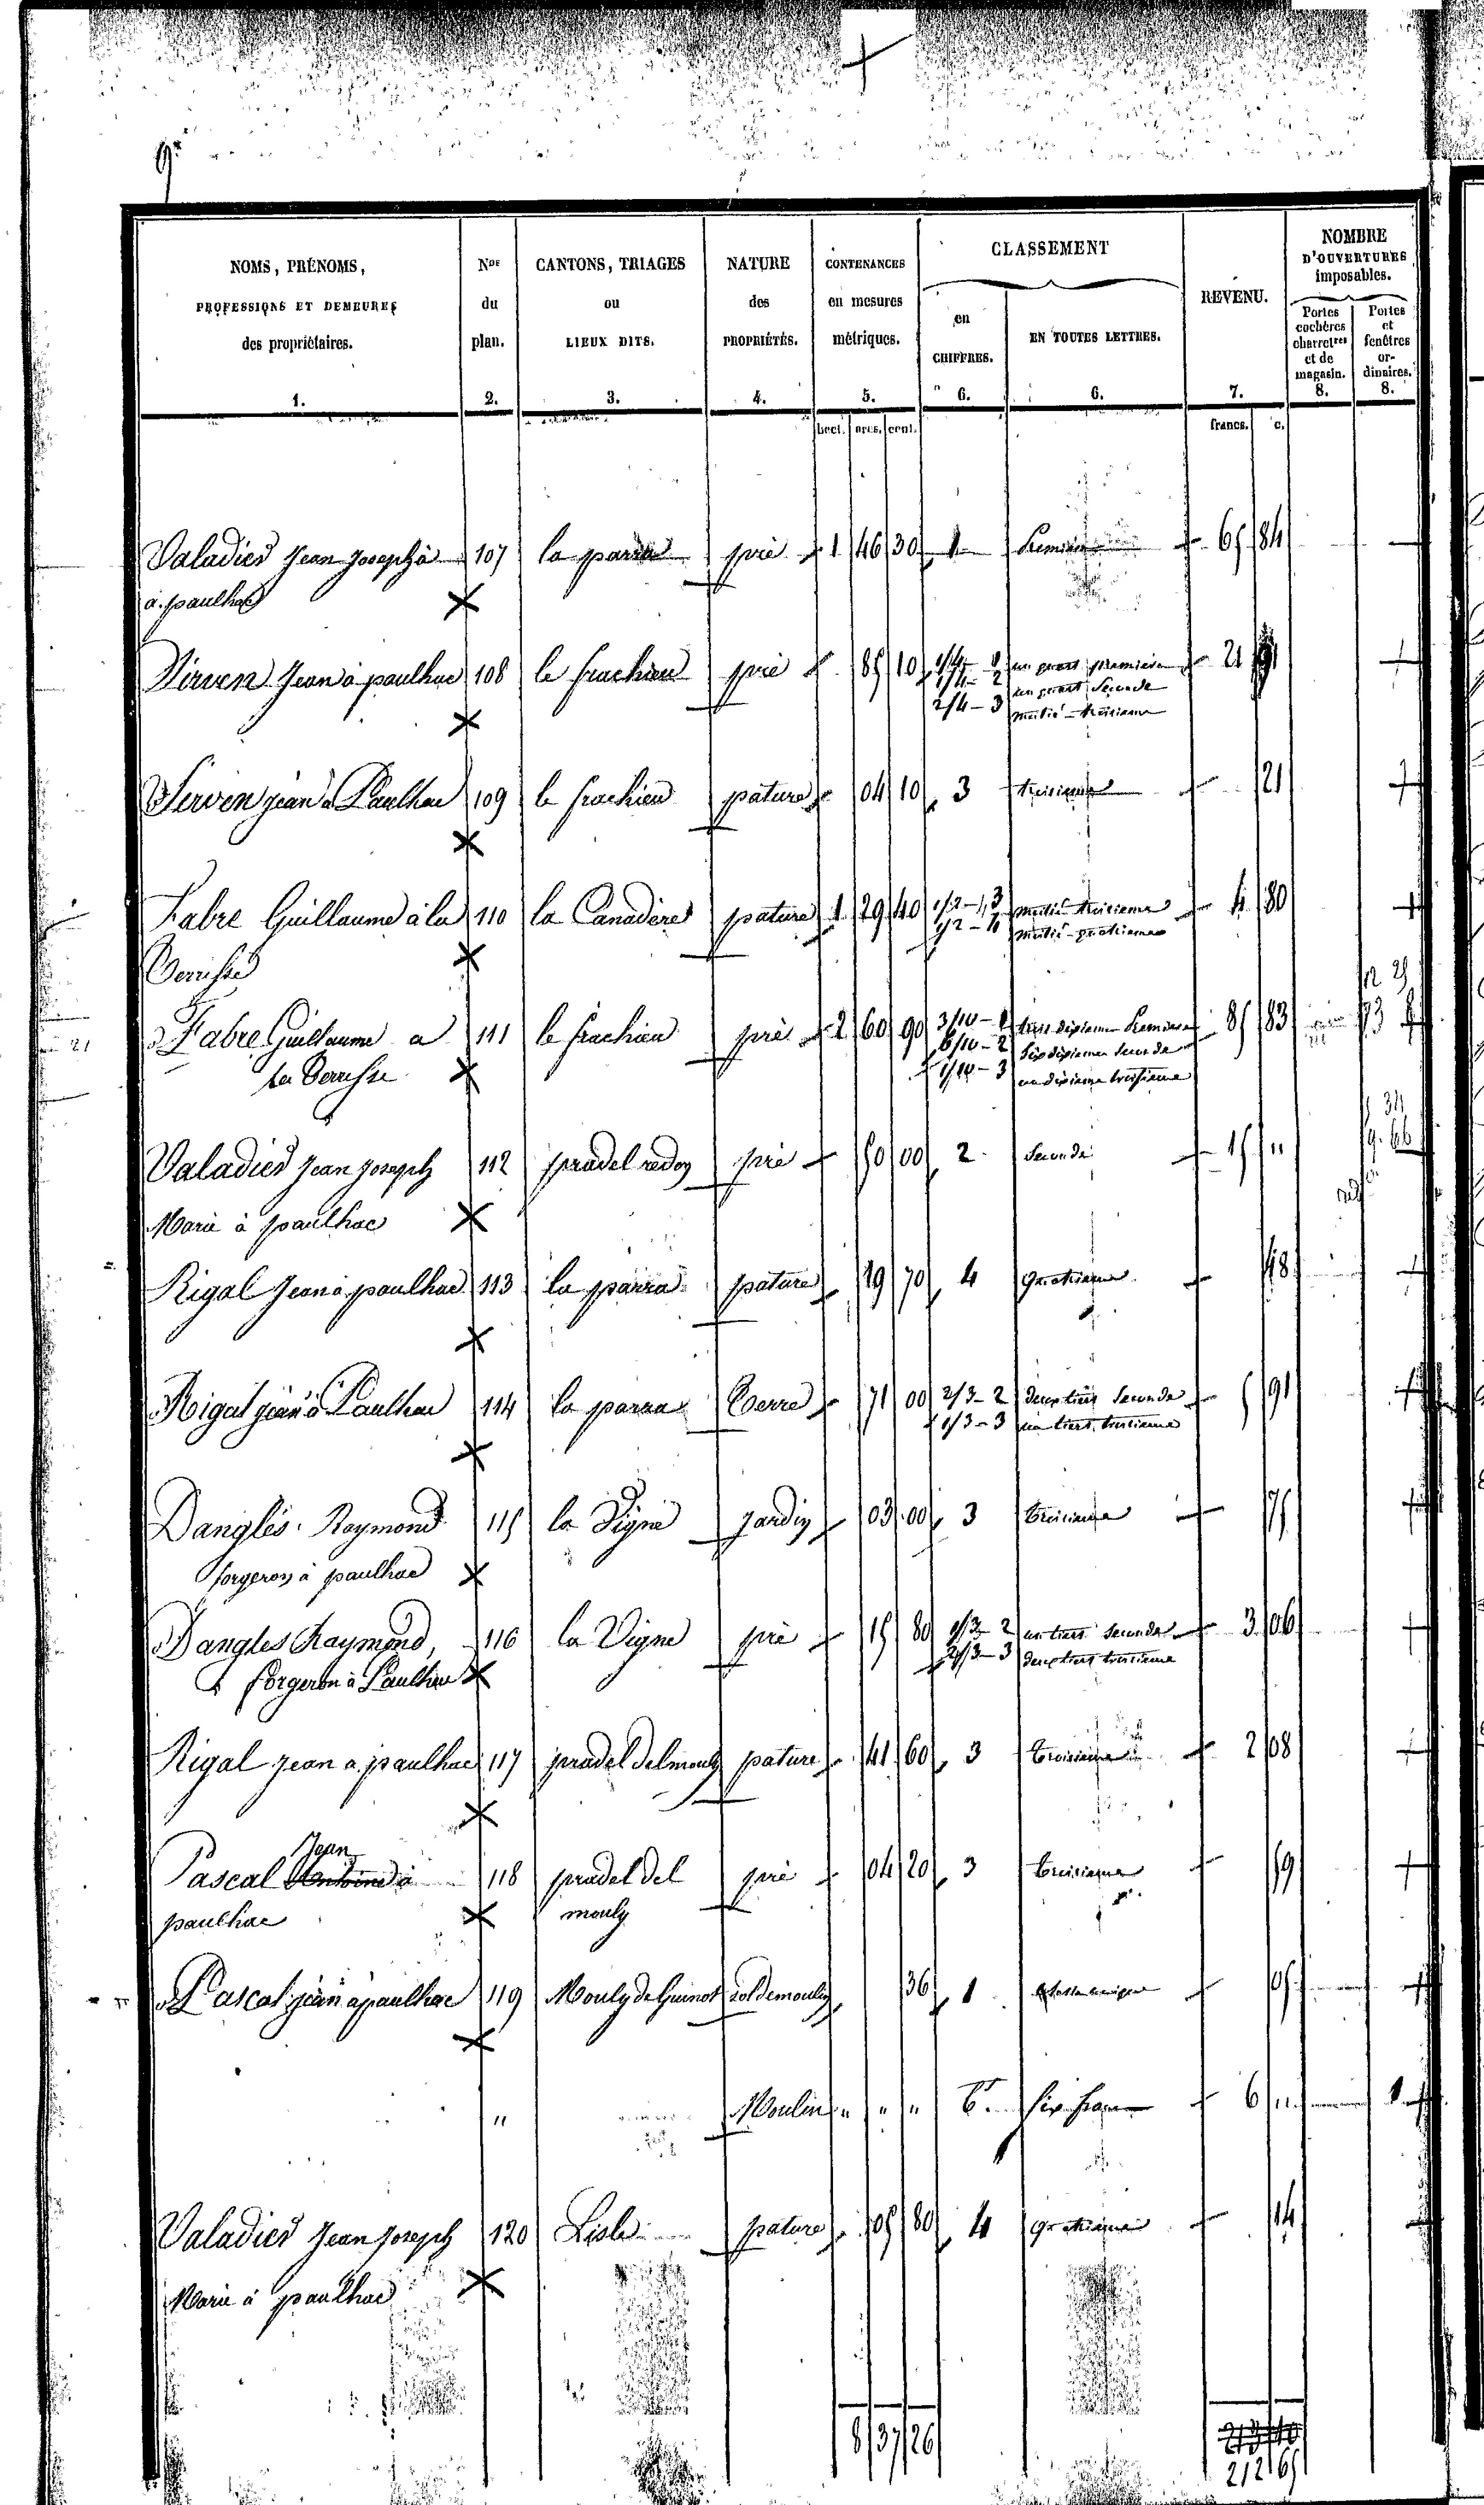 NOMS, PRÉNOMS,
PROFESSIONS ET DEMEURES
des propriétaires.
1.
Nos
du
plan.
2.
CANTONS, TRIAGES
ou
LIEUX DITS.
3.
NATURE
des
PROPRIÉTÉS.
4.
CONTENANCES
en mesures
métriques.
5.
CLASSEMENT
en
CHIFFRES.
6.
EN TOUTES LETTRES.
6.
REVENU.
7.
NOMBRE
D'OUVERTURES
imposables.
Portes
cochères
charretres
et de
magasin.
8.
Portes
et
fenêtres
or-
dinaires.
8.
hect. ares. cent.
francs. c.
Valadier Jean Joseph à 107 la parra pré 1 46 30 1 Premiere 65 84
à paulhac
Jean à paulhac 108 le frachieu pré 85 10 1/4 - 1 un quart premiere 21
1/4 - 2 un quart Seconde
2/4 - 3 moitié - troisieme
jean à Paulhac 109 le frachieu pature 04 10 3 troisieme 21
Fabre Guillaume à la 110 la Canadere pature 1 29 40 1/2 - 3 moitié troisieme 4 80
1/2 - 4 moitié - quatrieme
Fabre Guillaume a 111 le frachieu pré 2 60 90 3/10 - 1 trois dixieme Premiere 85 83
6/10 - 2 Six dixieme Seconde
la 1/10 - 3 un dixieme troisieme
Valadier Jean Joseph 112 pradel redon pré 50 00 2 Seconde 15 "
Marie à paulhac
Rigal Jean à paulhac 113 la parra pature 19 70 4 quatrieme 48
Rigal jean à Paulhac 114 la parra Terre 71 00 2/3 - 2 deux tiers Seconde 5 91
1/3 - 3 un tiers troisieme
Dangles Raymond 115 la Vigne jardin 03 00 3 troisieme 75
forgeron à paulhac
Dangles Raymond, 116 la Vigne pré 15 80 1/3 - 2 un tiers seconde 3 06
forgeron à Paulhac 2/3 - 3 deux tiers troisieme
Rigal Jean a paulhac 117 pradel delmouly pature 41 60 3 troisieme 2 08
Jean
Pascal Antoine à 118 pradel del pré 04 20 3 troisieme 59
paulhac mouly
Pascal jean à paulhac 119 Mouly de Guinot sol de moulin 36 1 05
" Moulin " " " 6. Six francs 6 " 1
Valadier Jean Joseph 120 Lisle pature 05 80 4 quatrieme 14
Marie à paulhac
8 37 26
212 65